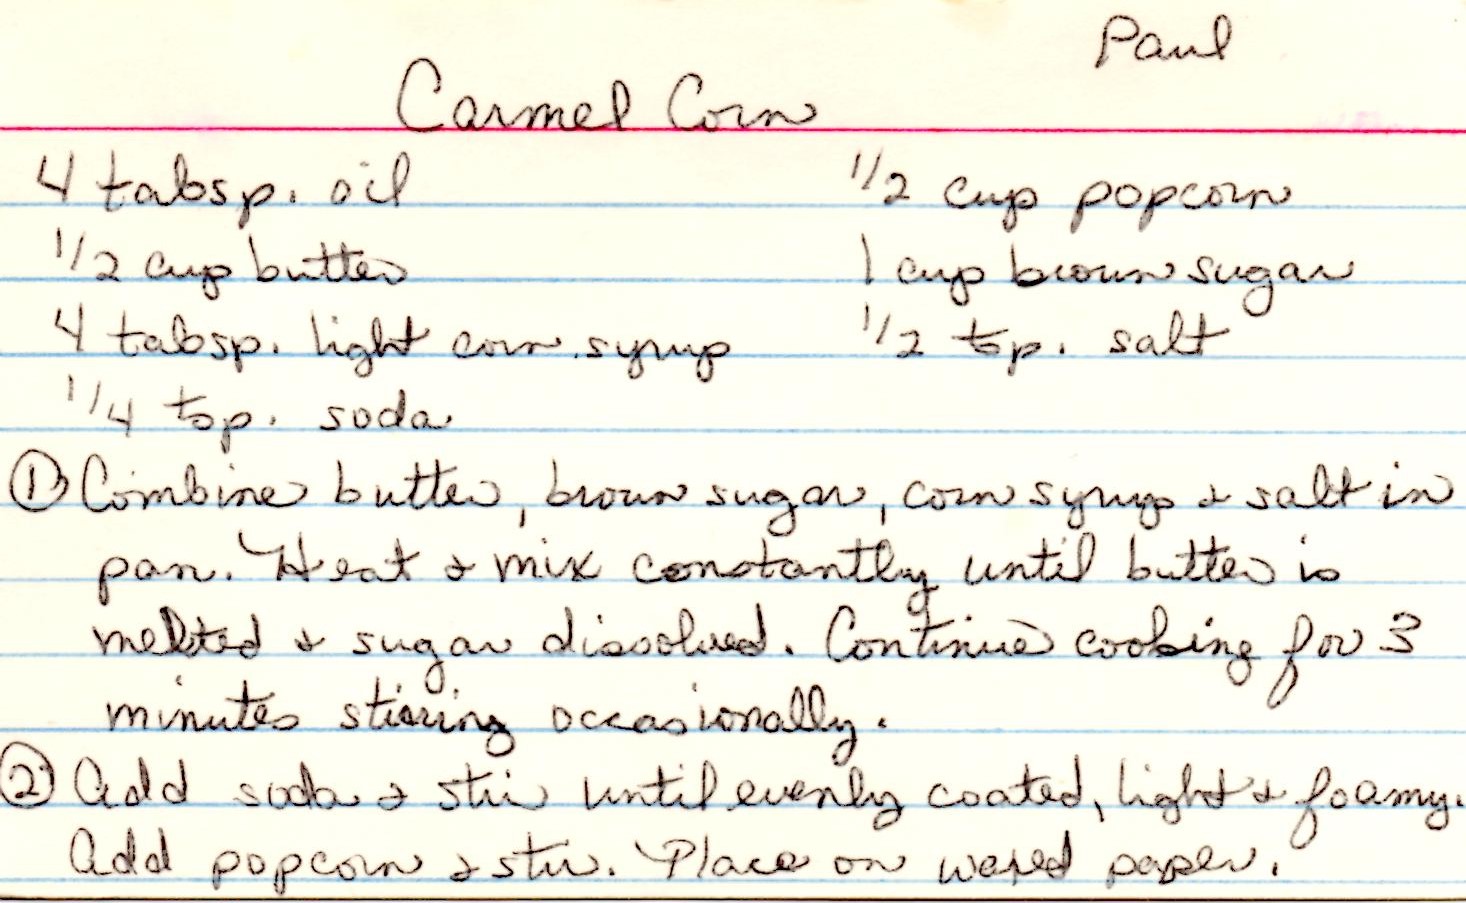 Paul
Carmel Corn
4 tabsp. oil 1/2 cup popcorn
1/2 cup butter 1 cup brown sugar
4 tabsp. light corn syrup 1/2 tsp. salt
1/4 tsp. soda
① Combine butter, brown sugar, corn syrup & salt in
pan. Heat & mix constantly until butter is
melted & sugar dissolved. Continue cooking for 3
minutes stirring occasionally.
② Add soda & stir until evenly coated, light & foamy.
Add popcorn & stir. Place on waxed paper.